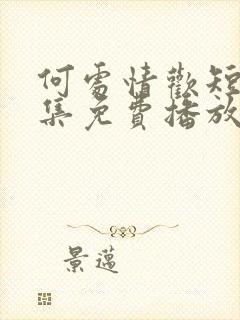 何處情歡短
集免費播放
景邁